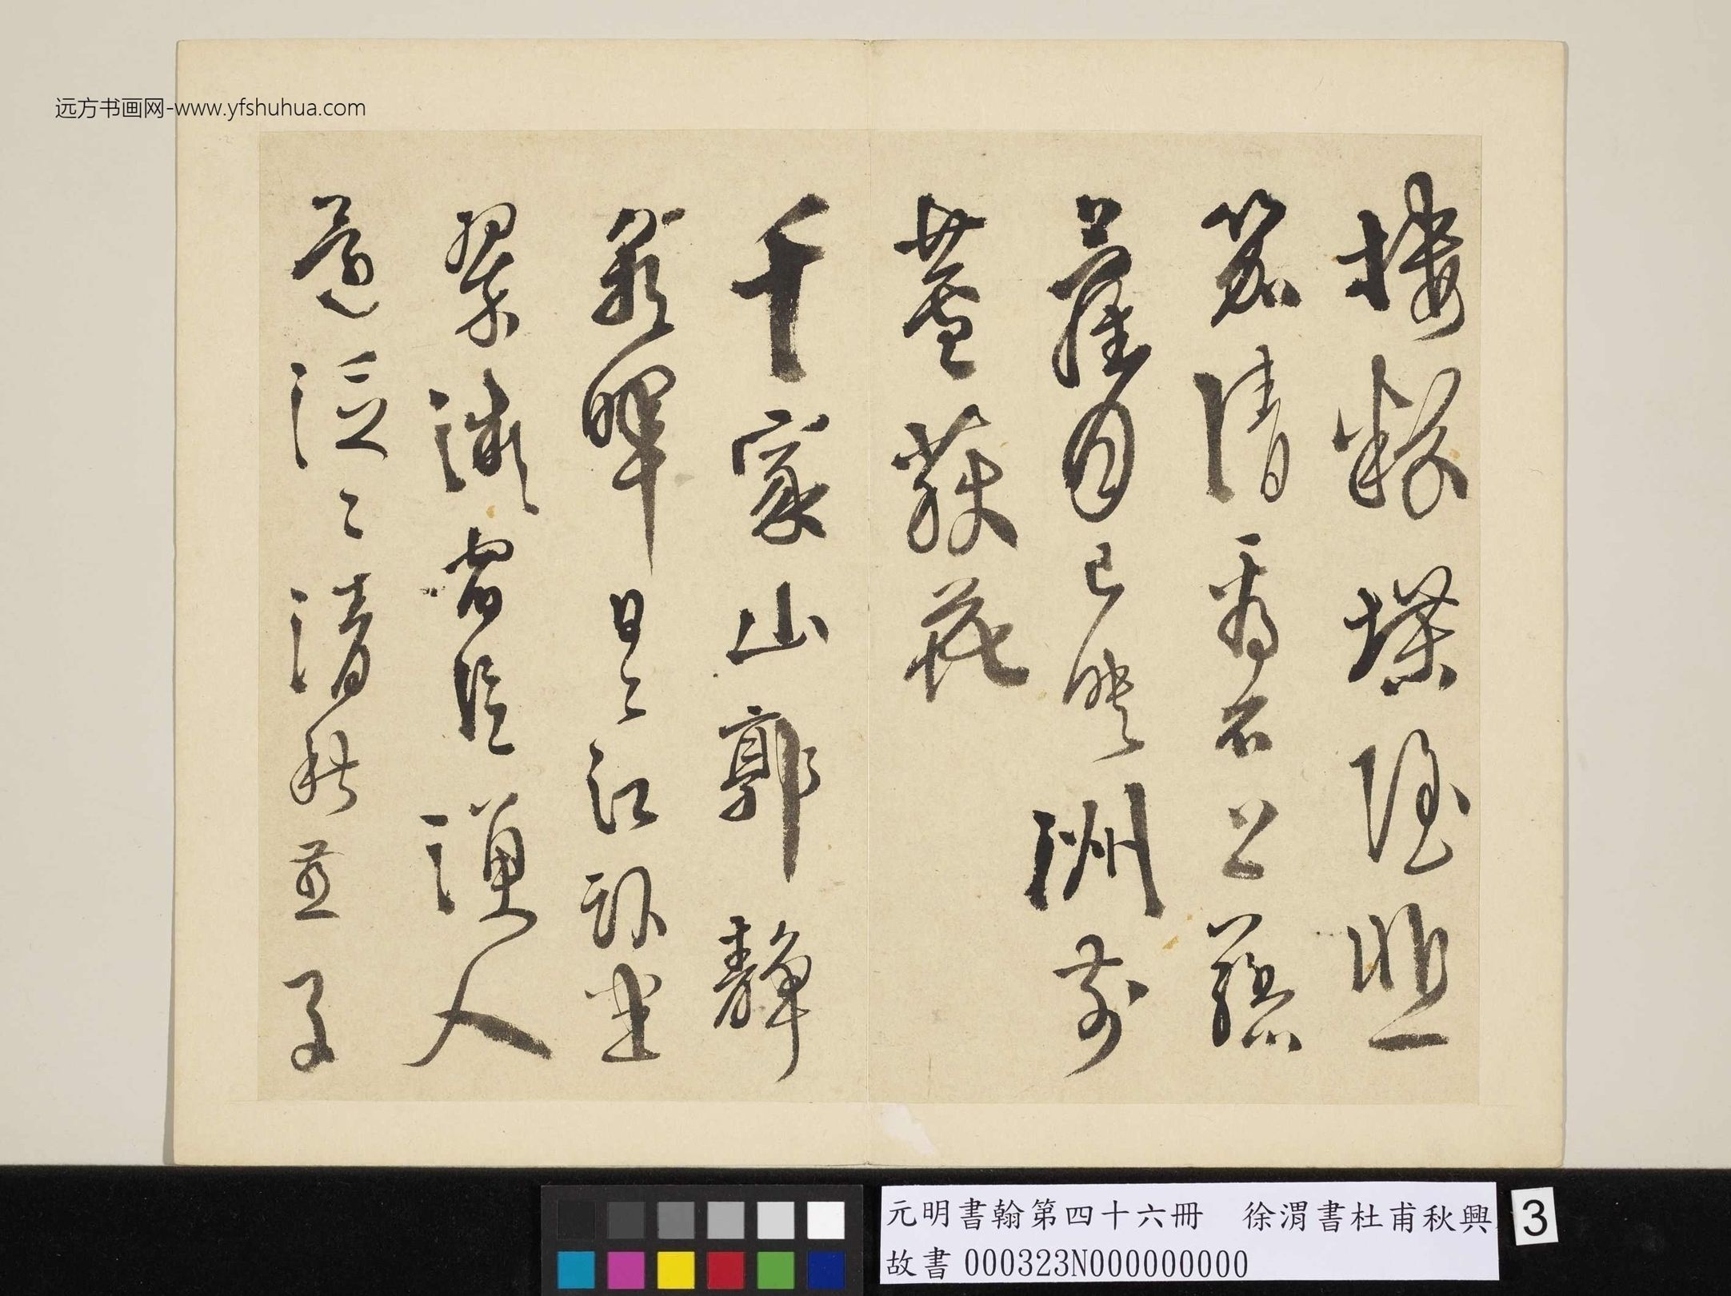 远方书画网-www.yfshuhua.com
樓粉堞隱悲
笳請看石上藤
蘿月已映洲前
蘆荻花
千家山郭靜
朝暉日〻江坐
翠微宿信漁人
還泛〻清秋燕子
元明書翰第四十六冊 徐渭書杜甫秋興
故書 000323N000000000
3